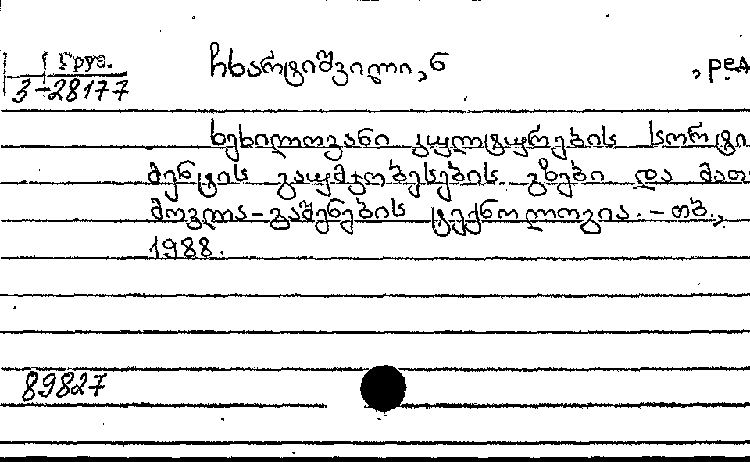 Груз.
3-28177
ჩხარტიშვილი, ნ , ред
ხეხილოვანი კულტურების სორტი
მენტის გაუმჯობესების გზები და მათ
მოვლა-გაშენების ტექნოლოგია. - თბ.,
1988.
89827